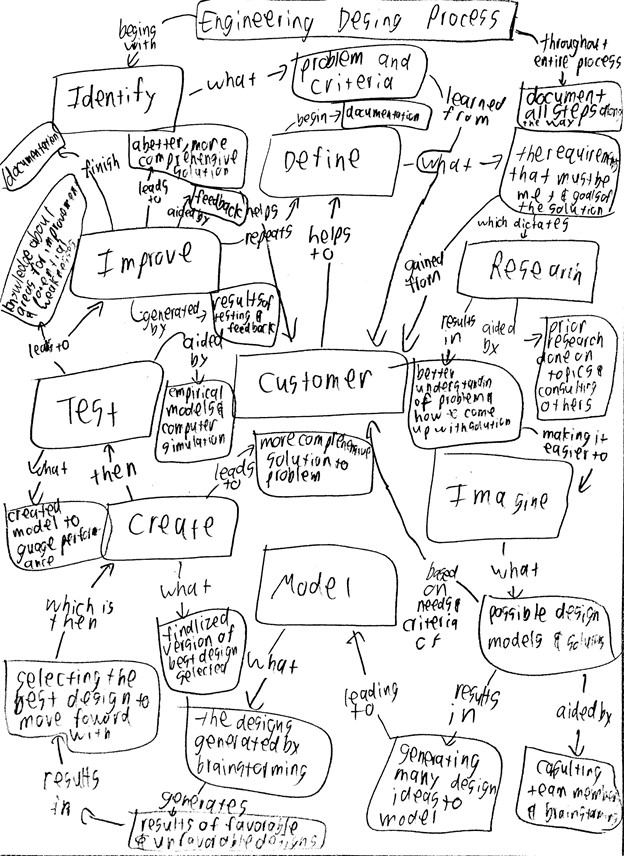 Engineering Desing Process
begins
with
throughout
entire process
Identify
what
problem and
criteria
learned
from
document
all steps along
the way
begin
documentation
Define
what
the requirements
that must be
met & goals of
the solution
documentation
finish
a better, more
comprehensive
solution
leads
to
aided by
feedback
helps
repeats
helps
to
which dictates
Improve
knowledge about
areas for improvement
&
weaknesses
generated
by
results of
testing &
feedback
gained
from
Research
results
in
aided
by
prior
research
done on
topics &
consulting
others
leads to
aided
by
Customer
better
understandin
of problem &
how to come
up with solution
Test
empirical
models &
computer
simulation
making it
easier to
what
then
leads
to
more comprehensive
solution to
problem
Imagine
created
model to
guage perform-
ance
Create
what
Model
based
on
needs &
criteria
of
what
possible design
models & solutions
which is
then
finalized
version of
best design
selected
what
selecting the
best design to
move foward
with
leading
to
results
in
aided by
the designs
generated by
brainstorming
generating
many design
ideas to
model
team members
& brainstorming
results
in
generates
results of favorable
& unfavorable